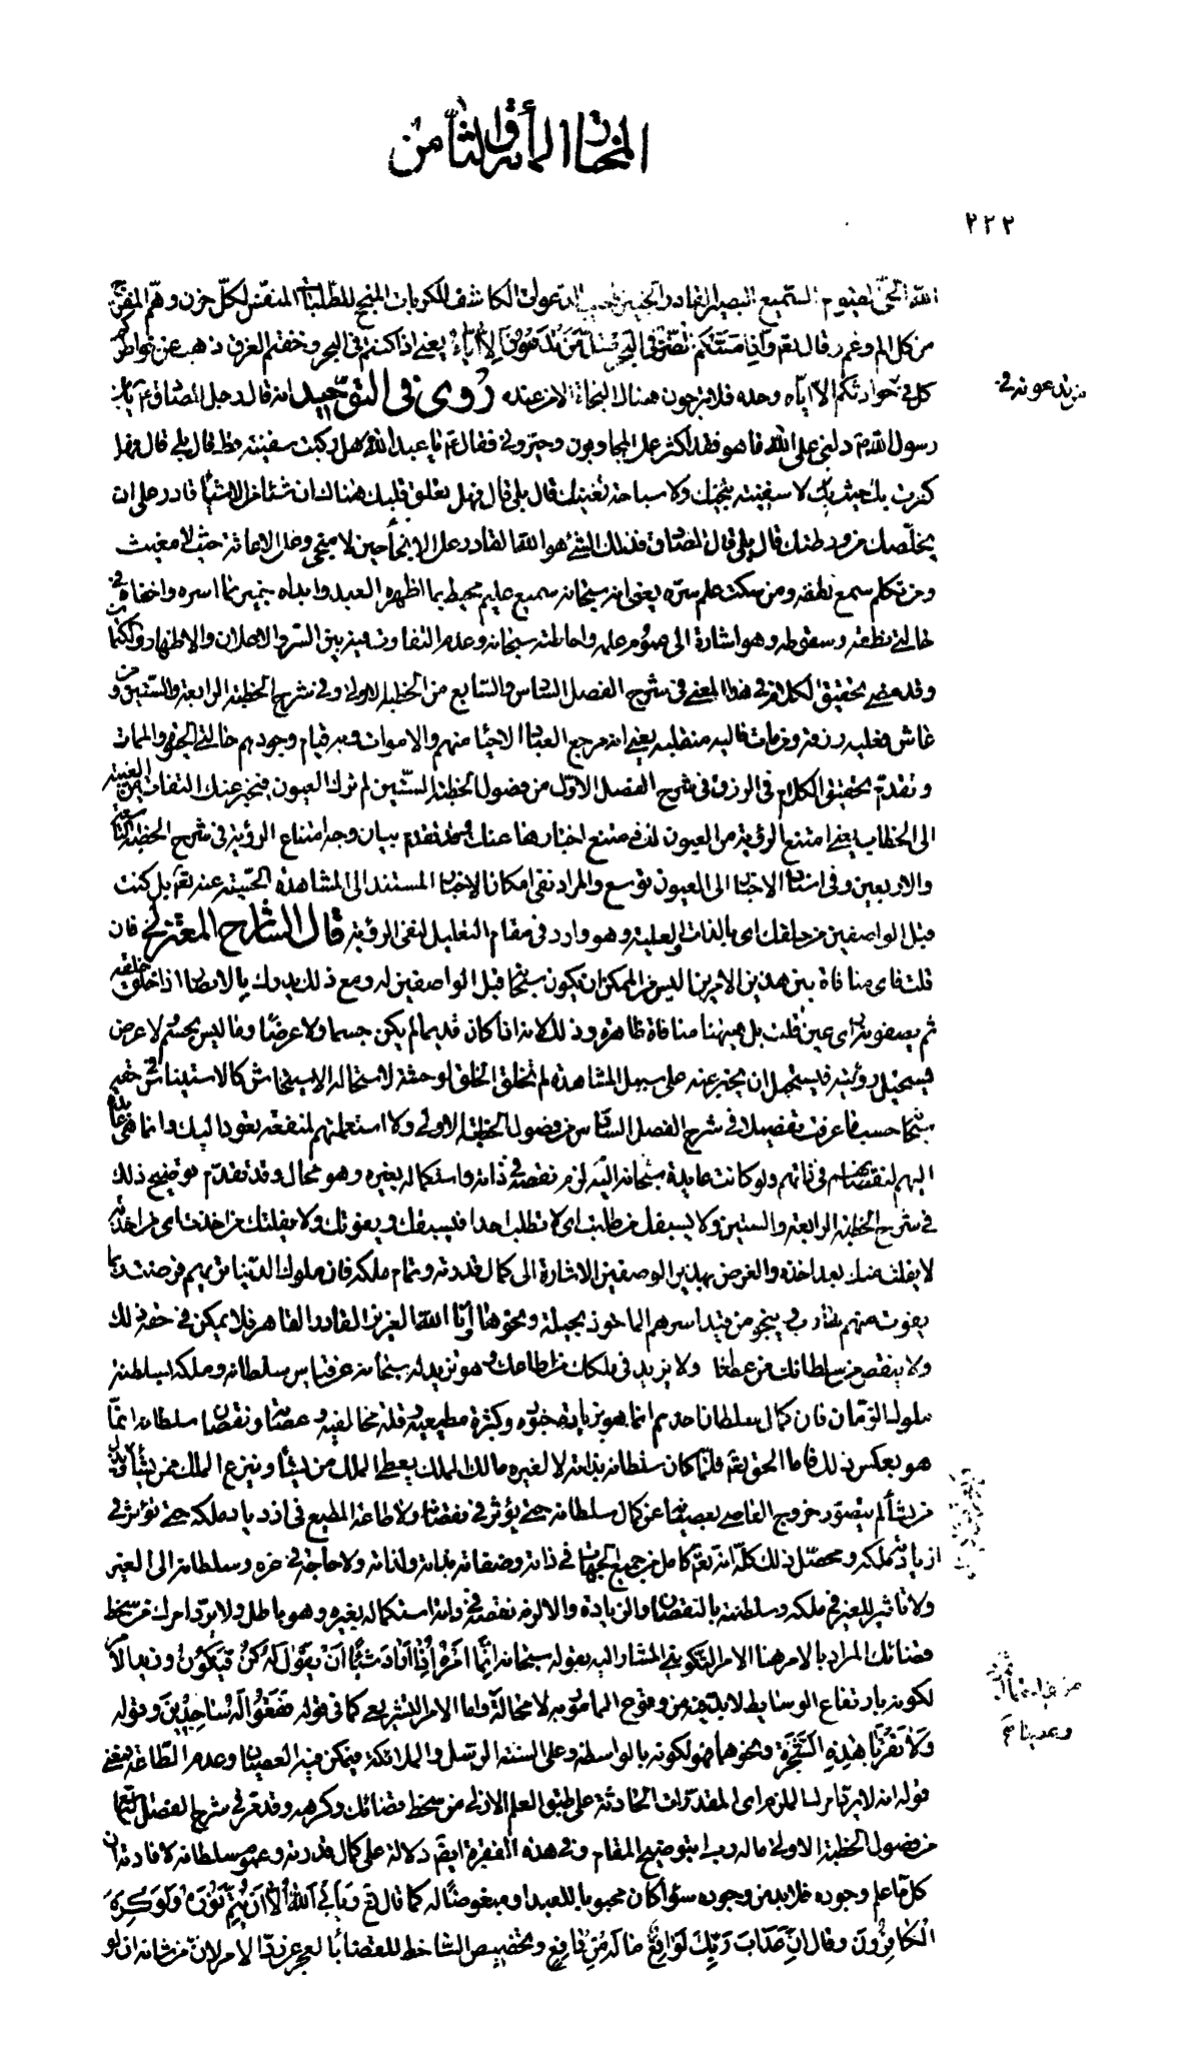 المختار المأة والثامن
٢٢٢
الله الحىّ القيوم السميع البصير القادر الخبير مجيب الدعوات الكاشف للكربات المنجح للطلبات المنفّس لكلّ حزن وهمّ المفرّج
من كل الم وغم وقال تعالى وَإِذا مَسَّكُمُ الضُّرُّ فِي الْبَحْرِ ضَلَّ مَنْ تَدْعُونَ إِلّا إِيّاهُ يعنى اذا كنتم فى البحر وخفتم الغرق ذهب عن خواطركم
كل من تدعونه فى حوادثكم الا ايّاه وحده فلا ترجون هناك النجاة الا من عنده رُوى فى التوحيد انه قال رجل للصّادق ع يابن
رسول الله دلّنى على الله ما هو فقد اكثر علىّ المجادلون وحيّرونى فقال ع يا عبد الله هل ركبت سفينة قط قال بلى قال فهل
كسرت بك حيث لا سفينة تنجيك ولا سباحة تغنيك قال بلى قال فهل تعلّق قلبك هناك ان شيئا من الاشياء قادر على ان
يخلّصك من ورطتك قال بلى قال الصّادق فذلك الشىء هو الله القادر على الانجاء حين لا منجى وعلى الاغاثة حيث لا مغيث
ومن تكلم سمع نطقه ومن سكت علم سرّه يعنى انه سبحانه سميع عليم محيط بما اظهره العبد وابداه خبير بما اسره واخفاه فى
حالتى نطقه وسكوته وهو اشارة الى عموم علمه واحاطته سبحانه وعدم التفاوت فيه بين السر والاعلان والاظهار والكتمان
وقد مضى تحقيق الكلام فى هذا المعنى فى شرح الفصل السّادس والسّابع من الخطبة الاولى وفى شرح الخطبة الرابعة والستين ومن
عاش فعليه رزقه ومن مات فاليه منقلبه يعنى انه مرجع العباد الاحياء منهم والاموات وبه قيام وجودهم حالتى الحياة والممات
وتقدّم تحقيق الكلام فى الرزق فى شرح الفصل الاوّل من فصول الخطبة السّتين لم ترك العيون فتخبر عنك التفات من الغيبة
الى الخطاب يعنى امتنع الرؤية من العيون لك فممتنع اخبارها عنك وقد تقدم بيان وجه امتناع الرؤية فى شرح الخطبة التاسعة
والاربعين وفى اسناد الاخبار الى العيون توسع والمراد نفى امكان الاخبار المستند الى المشاهدة الحسّية عنه تعالى بل كنت
قبل الواصفين من خلقك اى بالذات والعلية وهو وارد فى مقام التعليل لنفى الرؤية قال الشارح المعتزلى فان
قلت فاى منافاة بين هذين الامرين اليس من الممكن ان يكون سبحانه قبل الواصفين له ومع ذلك يدرك بالابصار اذا خلق خلقه
ثم يصفونه راى عين قلت بل ههنا منافاة ظاهرة وذلك لانه اذا كان قديما لم يكن جسما ولا عرضا وما ليس بجسم ولا عرض
يستحيل رؤيته فيستحيل ان يخبر عنه على سبيل المشاهدة لم تخلق الخلق لوحشة لاستحالة الاستيحاش كالاستيناس فى حقه
سبحانه حسبما عرفت تفصيلا فى شرح الفصل السّادس من فصول الخطبة الاولى ولا استعملتهم لمنفعة يعود اليك وانما هى عائدة
اليهم لنقصانهم فى ذاتهم ولو كانت عايدة سبحانه اليه لزم نقصه فى ذاته واستكماله بغيره وهو محال وقد تقدّم توضيح ذلك
فى شرح الخطبة الرابعة والستين ولا يسبقك من طلبت اى لا تطلب احدا فيسبقك ويفوتك ولا يفلتك من اخذت اى من اخذته
لا يفلت منك بعد اخذه والغرض بهذين الوصفين الاشارة الى كمال قدرته وتمام ملكه فان ملوك الدنيا
يفوت منهم هارب وينجو من قيد اسرهم الماخوذ بحيلة ونحوها وامّا الله العزيز القادر القاهر فلا يمكن فى حقه ذلك
ولا ينقص من سلطانك من عصاك ولا يزيد فى ملكك من اطاعك وهو تنزيه له سبحانه عن قياس سلطانه وملكه بسلطنة
ملوك الزمان فان كمال سلطان احدهم انما هو بزيادة جنوده وكثرة مطيعيه وقلة مخالفيه وعصاته ونقصان سلطانه انمّا
هو بعكس ذلك فاما الحق تعالى فلمّا كان سلطانه بذاته لا لغيره مالك الملك يعطى الملك من يشاء وينزع الملك ممن يشاء
من يشاء لم يتصوّر خروج العاصى بعصيانه عن كمال سلطانه حتى يؤثر فى نقصانه ولا طاعة المطيع فى ازدياد ملكه حتى تؤثر فى
ازدياد ملكه ومحصّل ذلك كلّه انه تعالى كامل من جميع الجهات فى ذاته وصفاته بذاته ولذاته ولا حاجة فى عزه وسلطانه الى الغير
ولا تاثير للغير فى ملكه وسلطنته بالنقصان والزيادة والا لزم نقصه فى ذاته واستكماله بغيره وهو باطل ولا يردّ امرك من سخط
قضائك المراد بالامر هنا الامر التكوينى المشار اليه بقوله سبحانه إِنَّما أَمْرُهُ إِذا أَرادَ شَيْئاً أَنْ يَقُولَ لَهُ كُنْ فَيَكُونُ وهذا الامر
لكونه بارتفاع الوسايط لا بدّ فيه من وقوع المامور به لا محالة واما الامر التشريعى كما فى قوله فَقَعُوا لَهُ ساجِدِينَ وقوله
وَلا تَقْرَبا هذِهِ الشَّجَرَةَ ونحوهما فهو لكونه بالواسطة وعلى السنة الرسل والملائكة فيمكن فيه العصيان وعدم الطاعة فمعنى
قوله انه لا يردّ امر الملزم اى المقدّرات الحادثة على طبق العلم الازلى من سخط قضائك وكرهه وقد مرّ فى شرح الفصل التاسع
من فصول الخطبة الاولى ماله ربط بتوضيح المقام وفى هذه الفقرة ايضا دلالة على كمال قدرته وعموم سلطانه لافادته ان
كل ما علم وجوده فلا بد من وجوده سواء كان محبوبا للعبد او مبغوضا له كما قال تعالى وَيَأْبَى اللَّهُ إِلّا أَنْ يُتِمَّ نُورَهُ وَلَوْ كَرِهَ
الْكافِرُونَ وقال إِنَّ عَذابَ رَبِّكَ لَواقِعٌ ما لَهُ مِنْ دافِعٍ وتخصيص الساخط للقضاء بالعجز عن ردّ الامر لانّ من شانه ان لو
من تدعونه فى